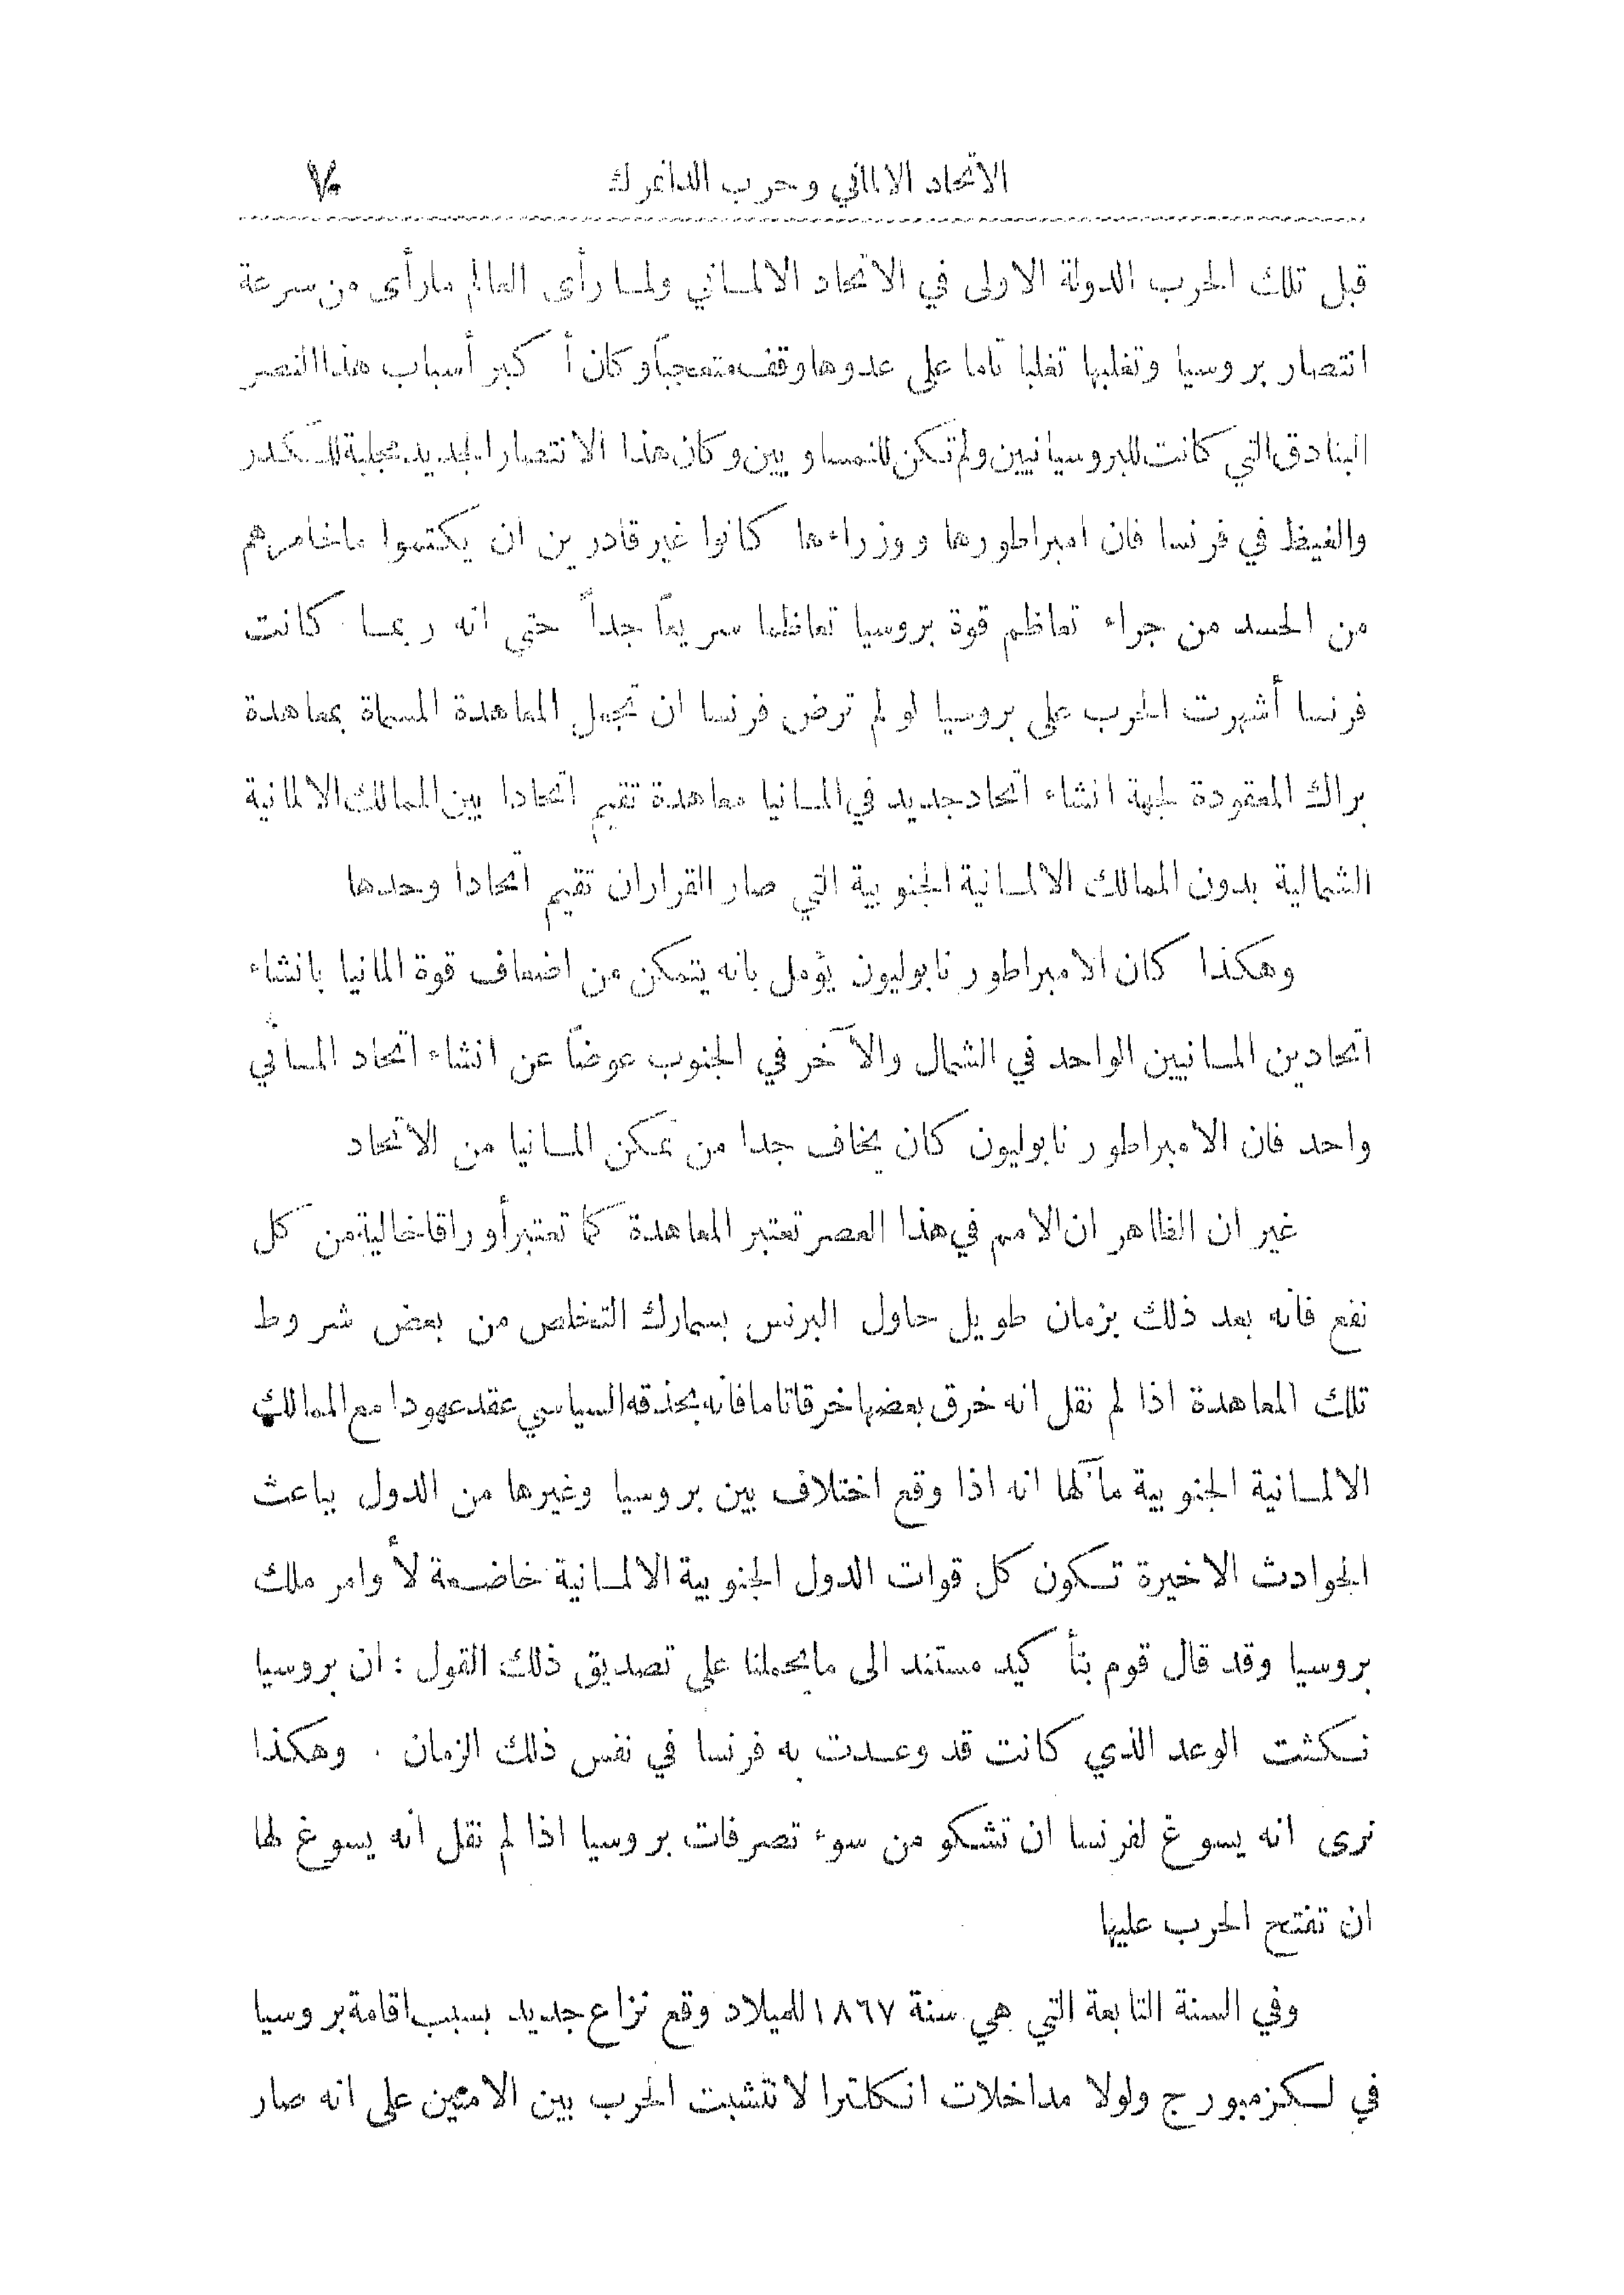 الاتحاد الالماني وحرب الدانمرك ٧٠
قبل تلك الحرب الدولة الاولى في الاتحاد الالماني ولما رأى العالم ما رأى من سرعة
انتصار بروسيا وتغلبها تغلبا تاما على عدوها وقف متعجباً وكان أكبر أسباب هذا النصر
البنادق التي كانت للبروسيانيين ولم تكن للنمساويين وكان هذا الانتصار الجديد مجلبة للكدر
والغيظ في فرنسا فان امبراطورها ووزراءها كانوا غير قادرين ان يكتموا ما خامرهم
من الحسد من جراء تعاظم قوة بروسيا تعاظما سريعاً جداً حتى انه ربما كانت
فرنسا أشهرت الحرب على بروسيا لو لم ترض فرنسا ان تجعل المعاهدة المسماة بمعاهدة
براك المعقودة لجهة انشاء اتحاد جديد في المانيا معاهدة تقيم اتحادا بين الممالك الالمانية
الشمالية بدون الممالك الالمانية الجنوبية التي صار القرار ان تقيم اتحادا وحدها
وهكذا كان الامبراطور نابوليون يؤمل بانه يتمكن من اضعاف قوة المانيا بانشاء
اتحادين المانيين الواحد في الشمال والآخر في الجنوب عوضاً عن انشاء اتحاد الماني
واحد فان الامبراطور نابوليون كان يخاف جدا من تمكن المانيا من الاتحاد
غير ان الظاهر ان الامم في هذا العصر تعتبر المعاهدة كما تعتبر أوراقا خالية من كل
نفع فانه بعد ذلك بزمان طويل حاول البرنس بسمارك التخلص من بعض شروط
تلك المعاهدة اذا لم نقل انه خرق بعضها خرقا تاما فانه بحذقه السياسي عقد عهودا مع الممالك
الالمانية الجنوبية مآلها انه اذا وقع اختلاف بين بروسيا وغيرها من الدول بباعث
الحوادث الاخيرة تكون كل قوات الدول الجنوبية الالمانية خاضعة لأوامر ملك
بروسيا وقد قال قوم بتأكيد مستند الى ما يحملنا على تصديق ذلك القول : ان بروسيا
نكثت الوعد الذي كانت قد وعدت به فرنسا في نفس ذلك الزمان . وهكذا
نرى انه يسوغ لفرنسا ان تشكو من سوء تصرفات بروسيا اذا لم نقل انه يسوغ لها
ان تفتتح الحرب عليها
وفي السنة التابعة التي هي سنة ١٨٦٧ للميلاد وقع نزاع جديد بسبب اقامة بروسيا
في لكزمبورج ولولا مداخلات انكلترا لانتشبت الحرب بين الامتين على انه صار